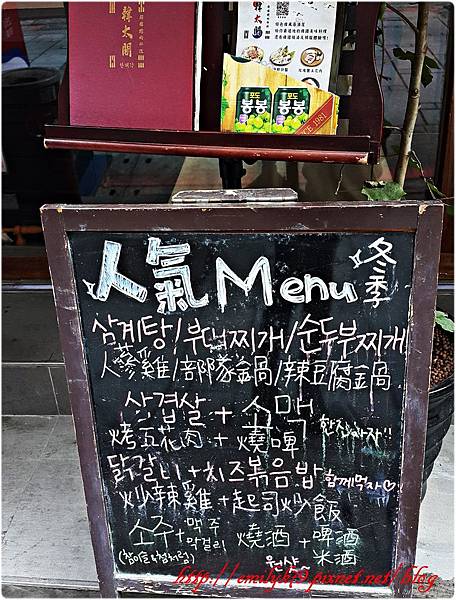 韓太閣
한태각
韓太閣
포도
봉봉
포도
봉봉
SINCE 1981
人氣Menu 冬季
삼계탕/부대찌개/순두부찌개
人蔘雞/部隊鍋/辣豆腐鍋
삼겹살 + 소맥
烤五花肉 + 燒啤 한잔하자!!
닭갈비 + 치즈볶음밥
炒辣雞 + 起司炒飯 함께먹자♡
소주 + 맥주 막걸리
燒酒 + 啤酒 米酒